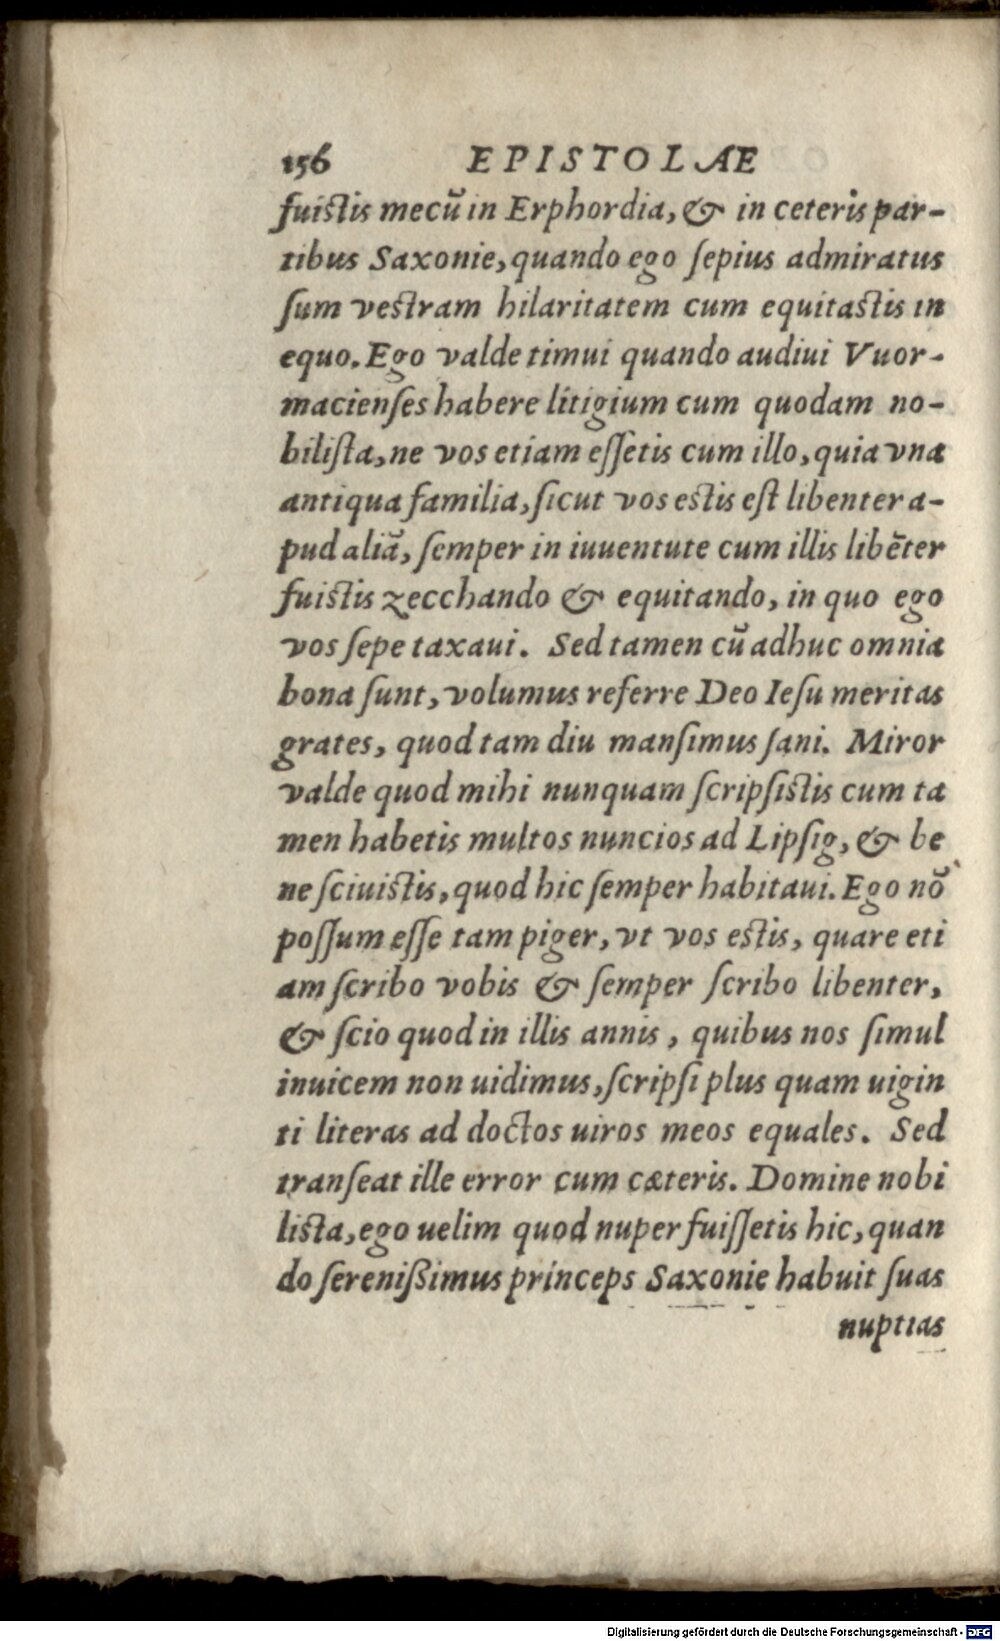 156 EPISTOLAE
fuistis mecū in Erphordia, & in ceteris par-
tibus Saxonie, quando ego sepius admiratus
sum vestram hilaritatem cum equitastis in
equo. Ego valde timui quando audiui Vuor-
macienses habere litigium cum quodam no-
bilista, ne vos etiam essetis cum illo, quia vna
antiqua familia, sicut vos estis est libenter a-
pud aliā, semper in iuuentute cum illis libēter
fuistis zecchando & equitando, in quo ego
vos sepe taxaui. Sed tamen cū adhuc omnia
bona sunt, volumus referre Deo Iesu meritas
grates, quod tam diu mansimus sani. Miror
valde quod mihi nunquam scripsistis cum ta
men habetis multos nuncios ad Lipsig, & be
ne sciuistis, quod hic semper habitaui. Ego nō
possum esse tam piger, vt vos estis, quare eti
am scribo vobis & semper scribo libenter,
& scio quod in illis annis, quibus nos simul
inuicem non uidimus, scripsi plus quam uigin
ti literas ad doctos uiros meos equales. Sed
transeat ille error cum cæteris. Domine nobi
lista, ego uelim quod nuper fuissetis hic, quan
do serenißimus princeps Saxonie habuit suas
nuptias
Digitalisierung gefördert durch die Deutsche Forschungsgemeinschaft - DFG